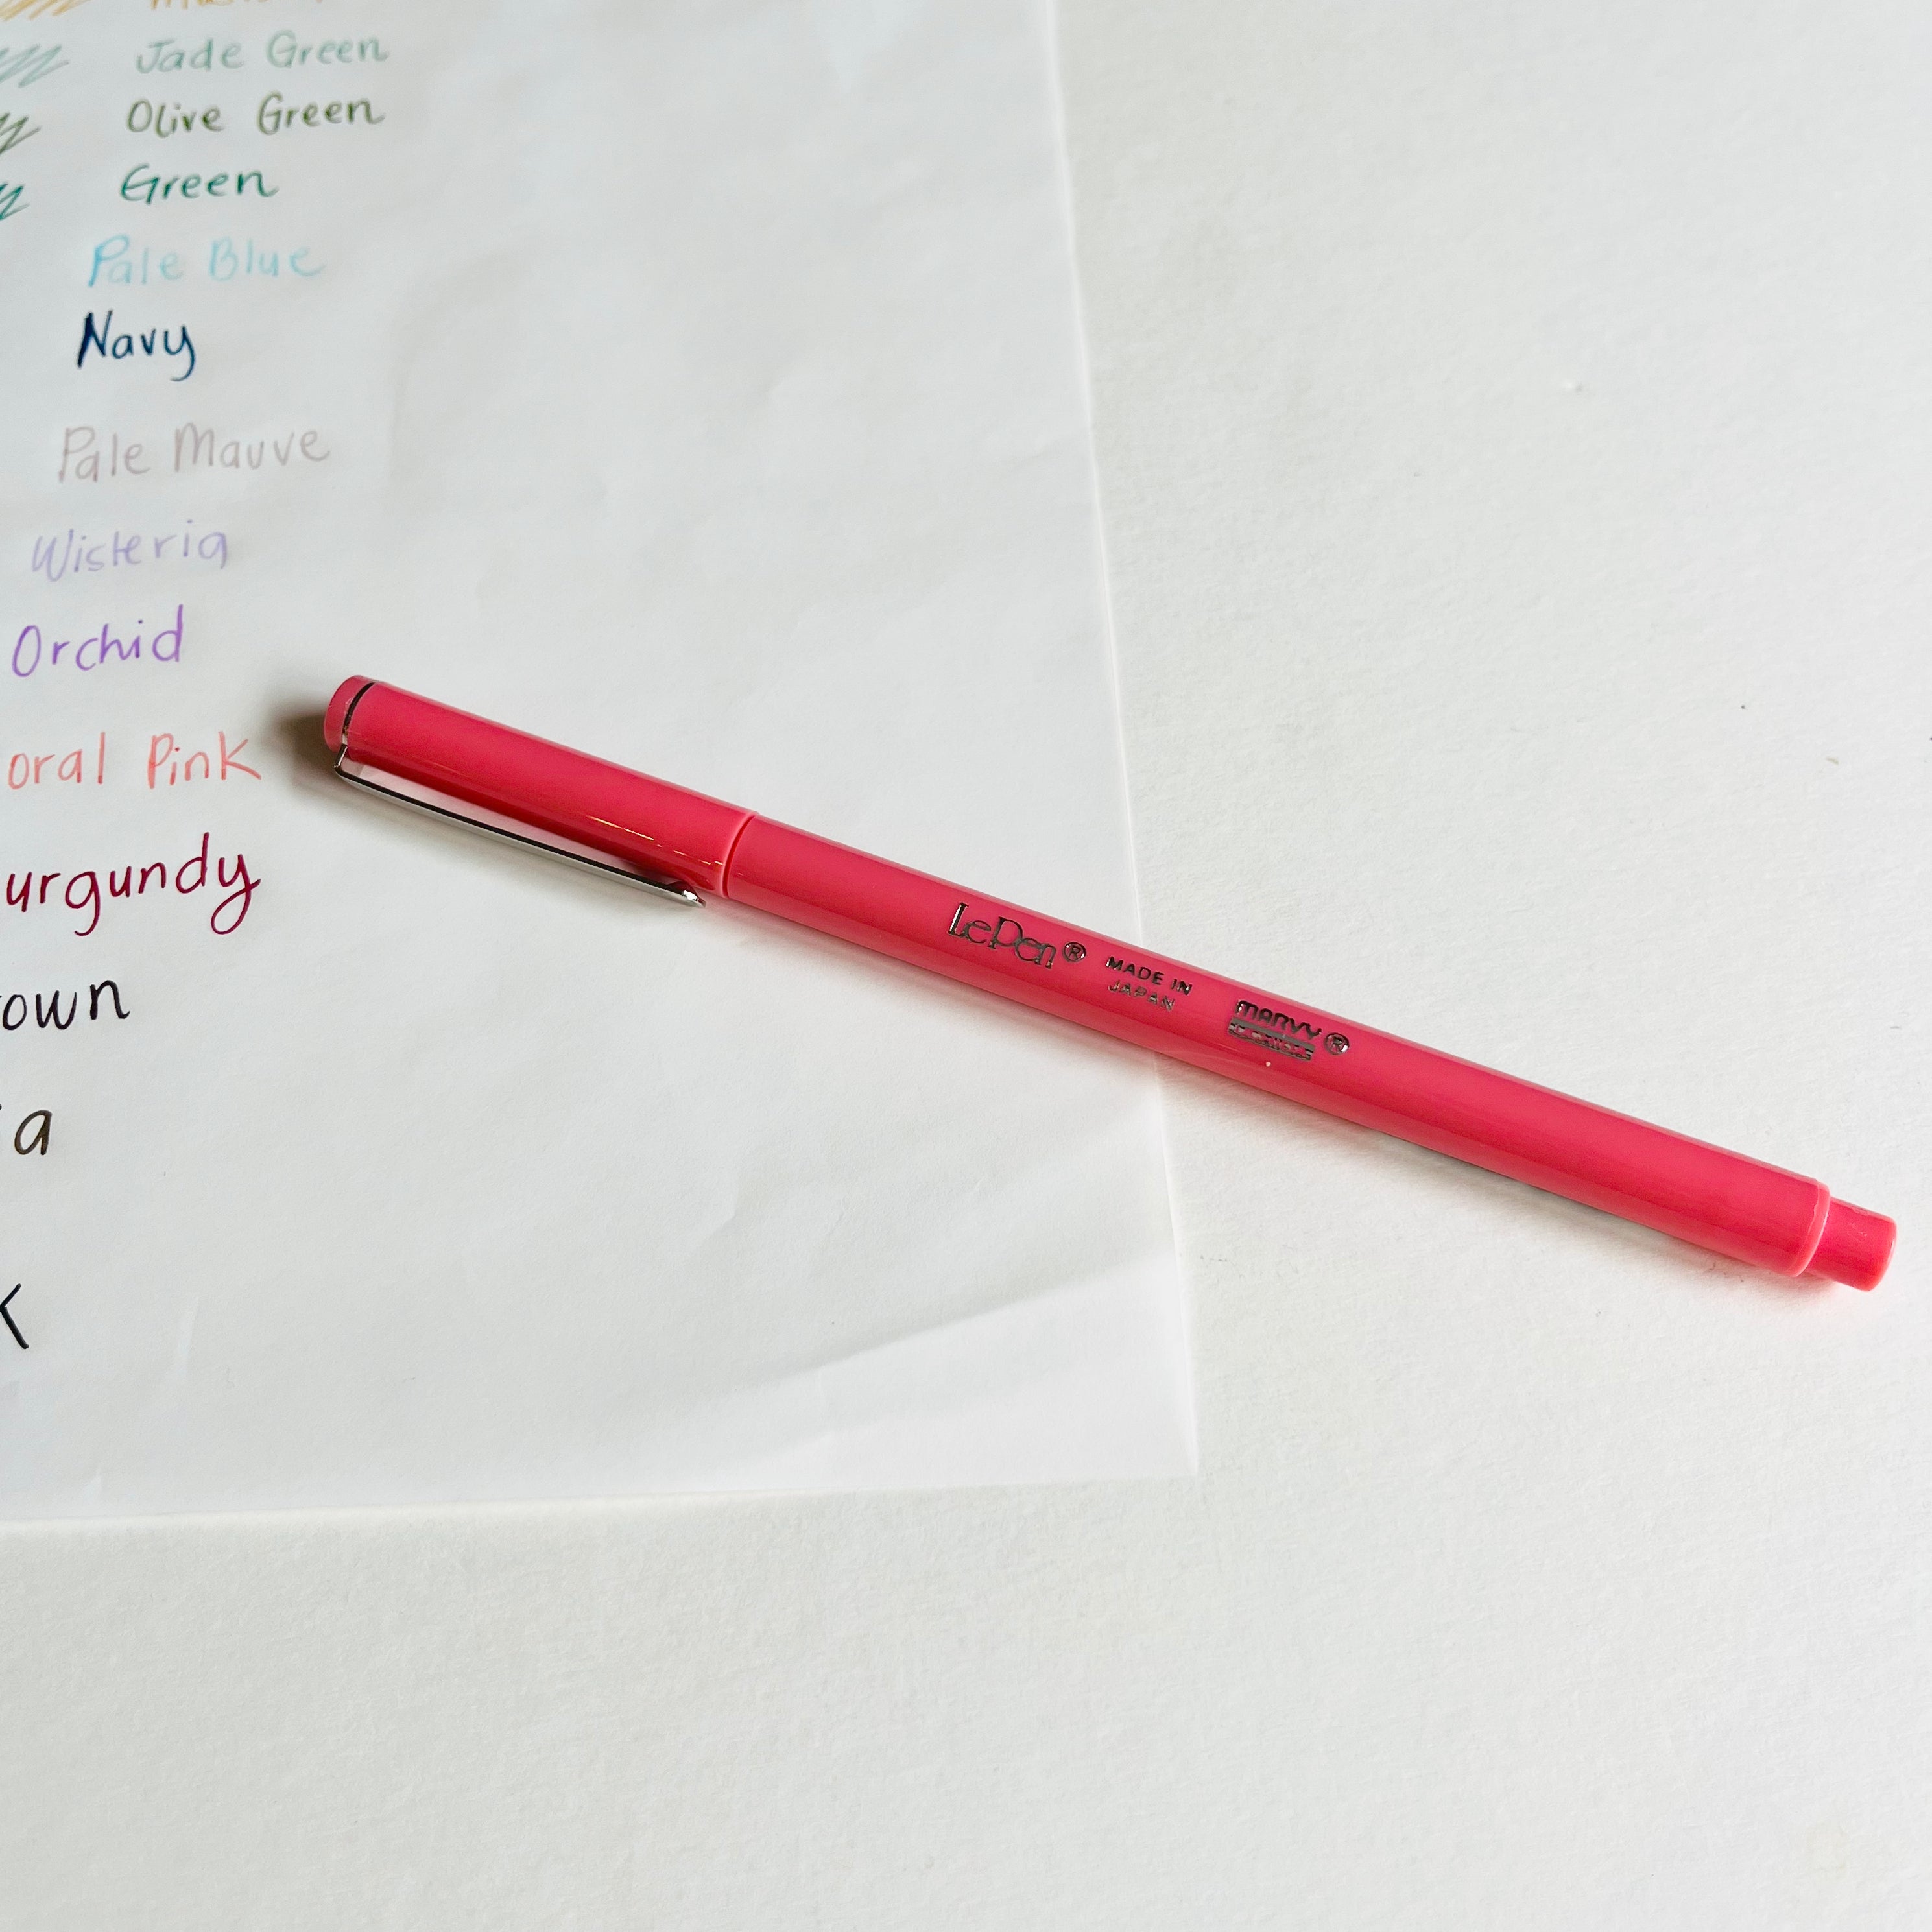 Jade Green
Olive Green
Green
Pale Blue
Navy
Pale Mauve
Wisteria
Orchid
oral Pink
urgundy
own
a
K
LePen®
MADE IN
JAPAN
MARVY®